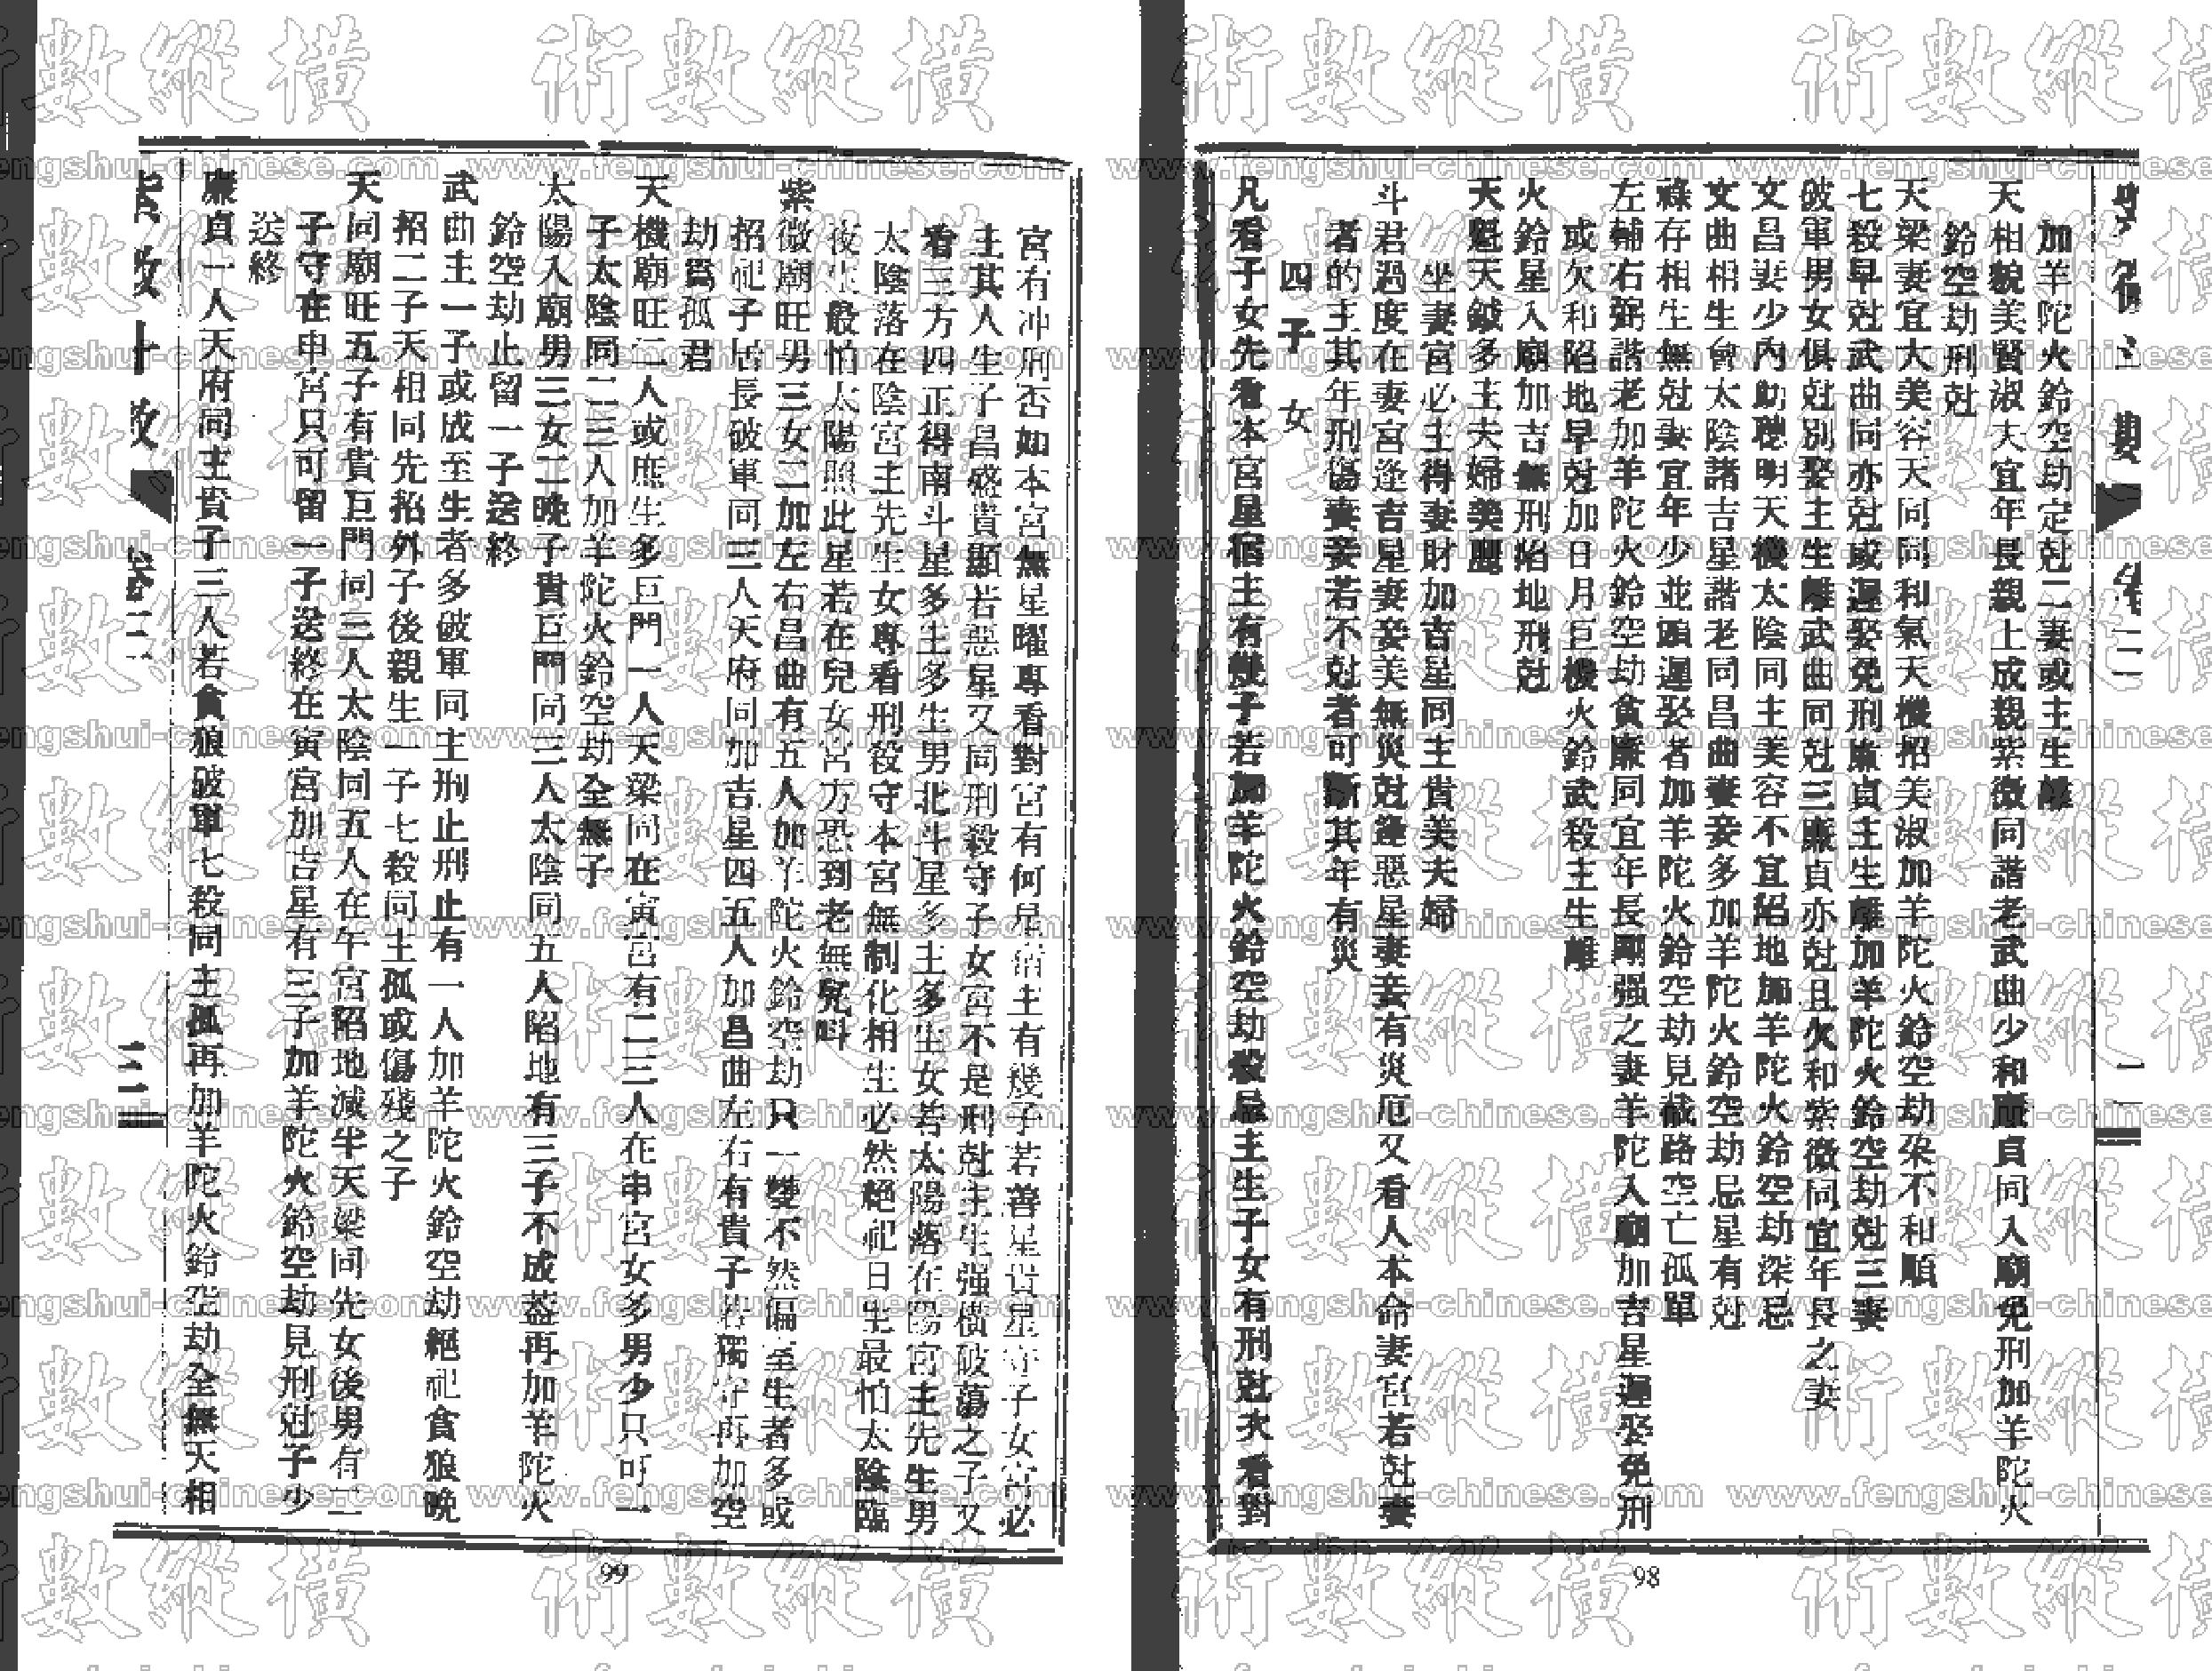 加羊陀火鈴空劫定尅二妻或主生離
天相貌美賢淑夫宜年長親上成親紫微同諧老武曲少和廉貞同入廟免刑加羊陀火
鈴空劫刑尅
天梁妻宜大美容天同同和氣天機招美淑加羊陀火鈴空劫不和順
七殺早尅武曲同亦尅或遲娶免刑廉貞主生離加羊陀火鈴空劫尅三妻
破軍男女俱尅別娶主生離武曲同尅三廉貞亦尅且欠和紫微同宜年長之妻
文昌妻少內助聰明天機太陰同主美容不宜陷地加羊陀火鈴空劫深忌
文曲相生會太陰諸吉星諧老同昌曲妻妾多加羊陀火鈴空劫忌星有尅
祿存相生無尅妻宜年少並頭遲娶者加羊陀火鈴空劫見截路空亡孤單
左輔右弼諧老加羊陀火鈴空劫貪廉同宜年長剛强之妻羊陀入廟加吉星遲娶免刑
或欠和陷地早尅加日月巨機火鈴武殺主生離
火鈴星入廟加吉無刑陷地刑尅
天魁天鉞多主夫婦美麗
坐妻宮必主得妻財加吉星同主貴美夫婦
斗君過度在妻宮逢吉星妻妾美無災尅逢惡星妻妾有災厄又看人本命妻宮若尅妻
者的主其年刑傷妻妾若不尅者可斷其年有災
四 子 女
凡看子女先看本宮星宿主有幾子若加羊陀火鈴空劫殺忌主生子女有刑尅次看對
98
宮有冲刑否如本宮無星曜專看對宮有何星宿主有幾子若善星貴星守子女宮必
主其人生子昌盛貴顯若惡星又同刑殺守子女宮不是刑尅主生强橫破蕩之子又
看三方四正得南斗星多主多生男北斗星多主多生女若太陽落在陽宮主先生男
太陰落在陰宮主先生女專看刑殺守本宮無制化相生必然絕祀日生最怕太陰臨
夜生最怕太陽照此星若在兒女宮方恐到老無兒叫
紫微廟旺男三女二加左右昌曲有五人加羊陀火鈴空劫只一雙不然偏室生者多或
招祀子居長破軍同三人天府同加吉星四五人加昌曲左右有貴子若獨守再加空
劫爲孤君
天機廟旺二人或庶生多巨門一人天梁同在寅宮有二三人在申宮女多男少只可一
子太陰同二三人加羊陀火鈴空劫全無子
太陽入廟男三女二晚子貴巨門同三人太陰同五人陷地有三子不成器再加羊陀火
鈴空劫止留一子送終
武曲主一子或成至生者多破軍同主刑止刑止有一人加羊陀火鈴空劫絕祀貪狼晚
招二子天相同先招外子後親生一子七殺同主孤或傷殘之子
天同廟旺五子有貴巨門同三人太陰同五人在午宮陷地減半天梁同先女後男有二
子守在申宮只可留一子送終在寅宮加吉星有三子加羊陀火鈴空劫見刑尅子少
送終
廉貞一人天府同主貴子三人若貪狼破軍七殺同主孤再加羊陀火鈴空劫全無天相
卷三
三
99